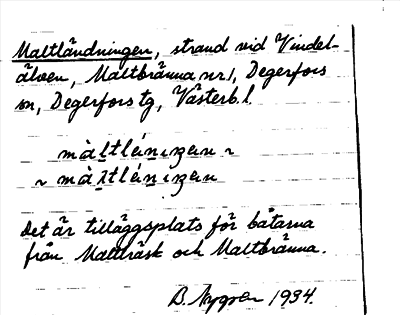 Maltländningen, strand vid Vindel-
älven, Maltbränna nr 1, Degerfors
sn, Degerfors tg, Västerb. l.
Det är tilläggsplats för båtarna
från Maltträsk och Maltbränna.
B. Nygren 1934.